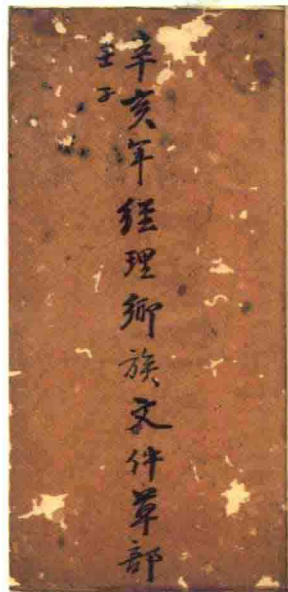 辛亥年經理鄉族文件草部
壬子